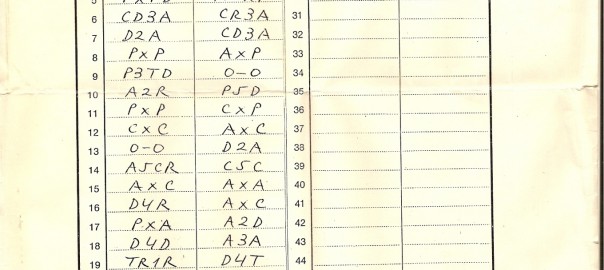 6 CD3A CR3A 31
7 D2A CD3A 32
8 PxP AxP 33
9 P3TD O-O 34
10 A2R P5D 35
11 PxP CxP 36
12 CxC AxC 37
13 O-O D2A 38
14 A5CR C5C 39
15 AxC AxA 40
16 D4R AxC 41
17 PxA A2D 42
18 D4D A3A 43
19 TR1R D4T 44